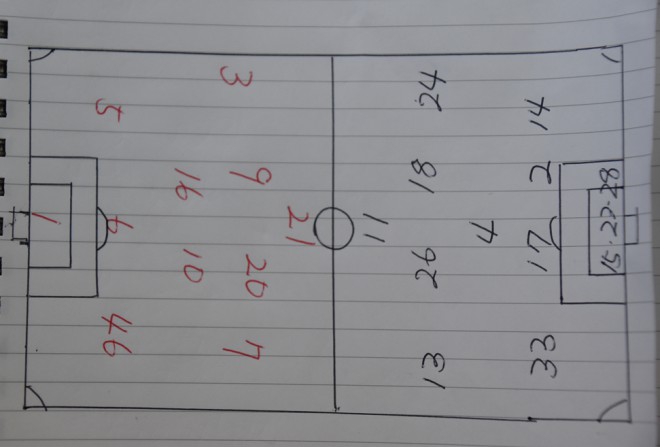 1
5
46
16
10
3
9
20
7
21
11
24
18
26
13
4
14
2
17
33